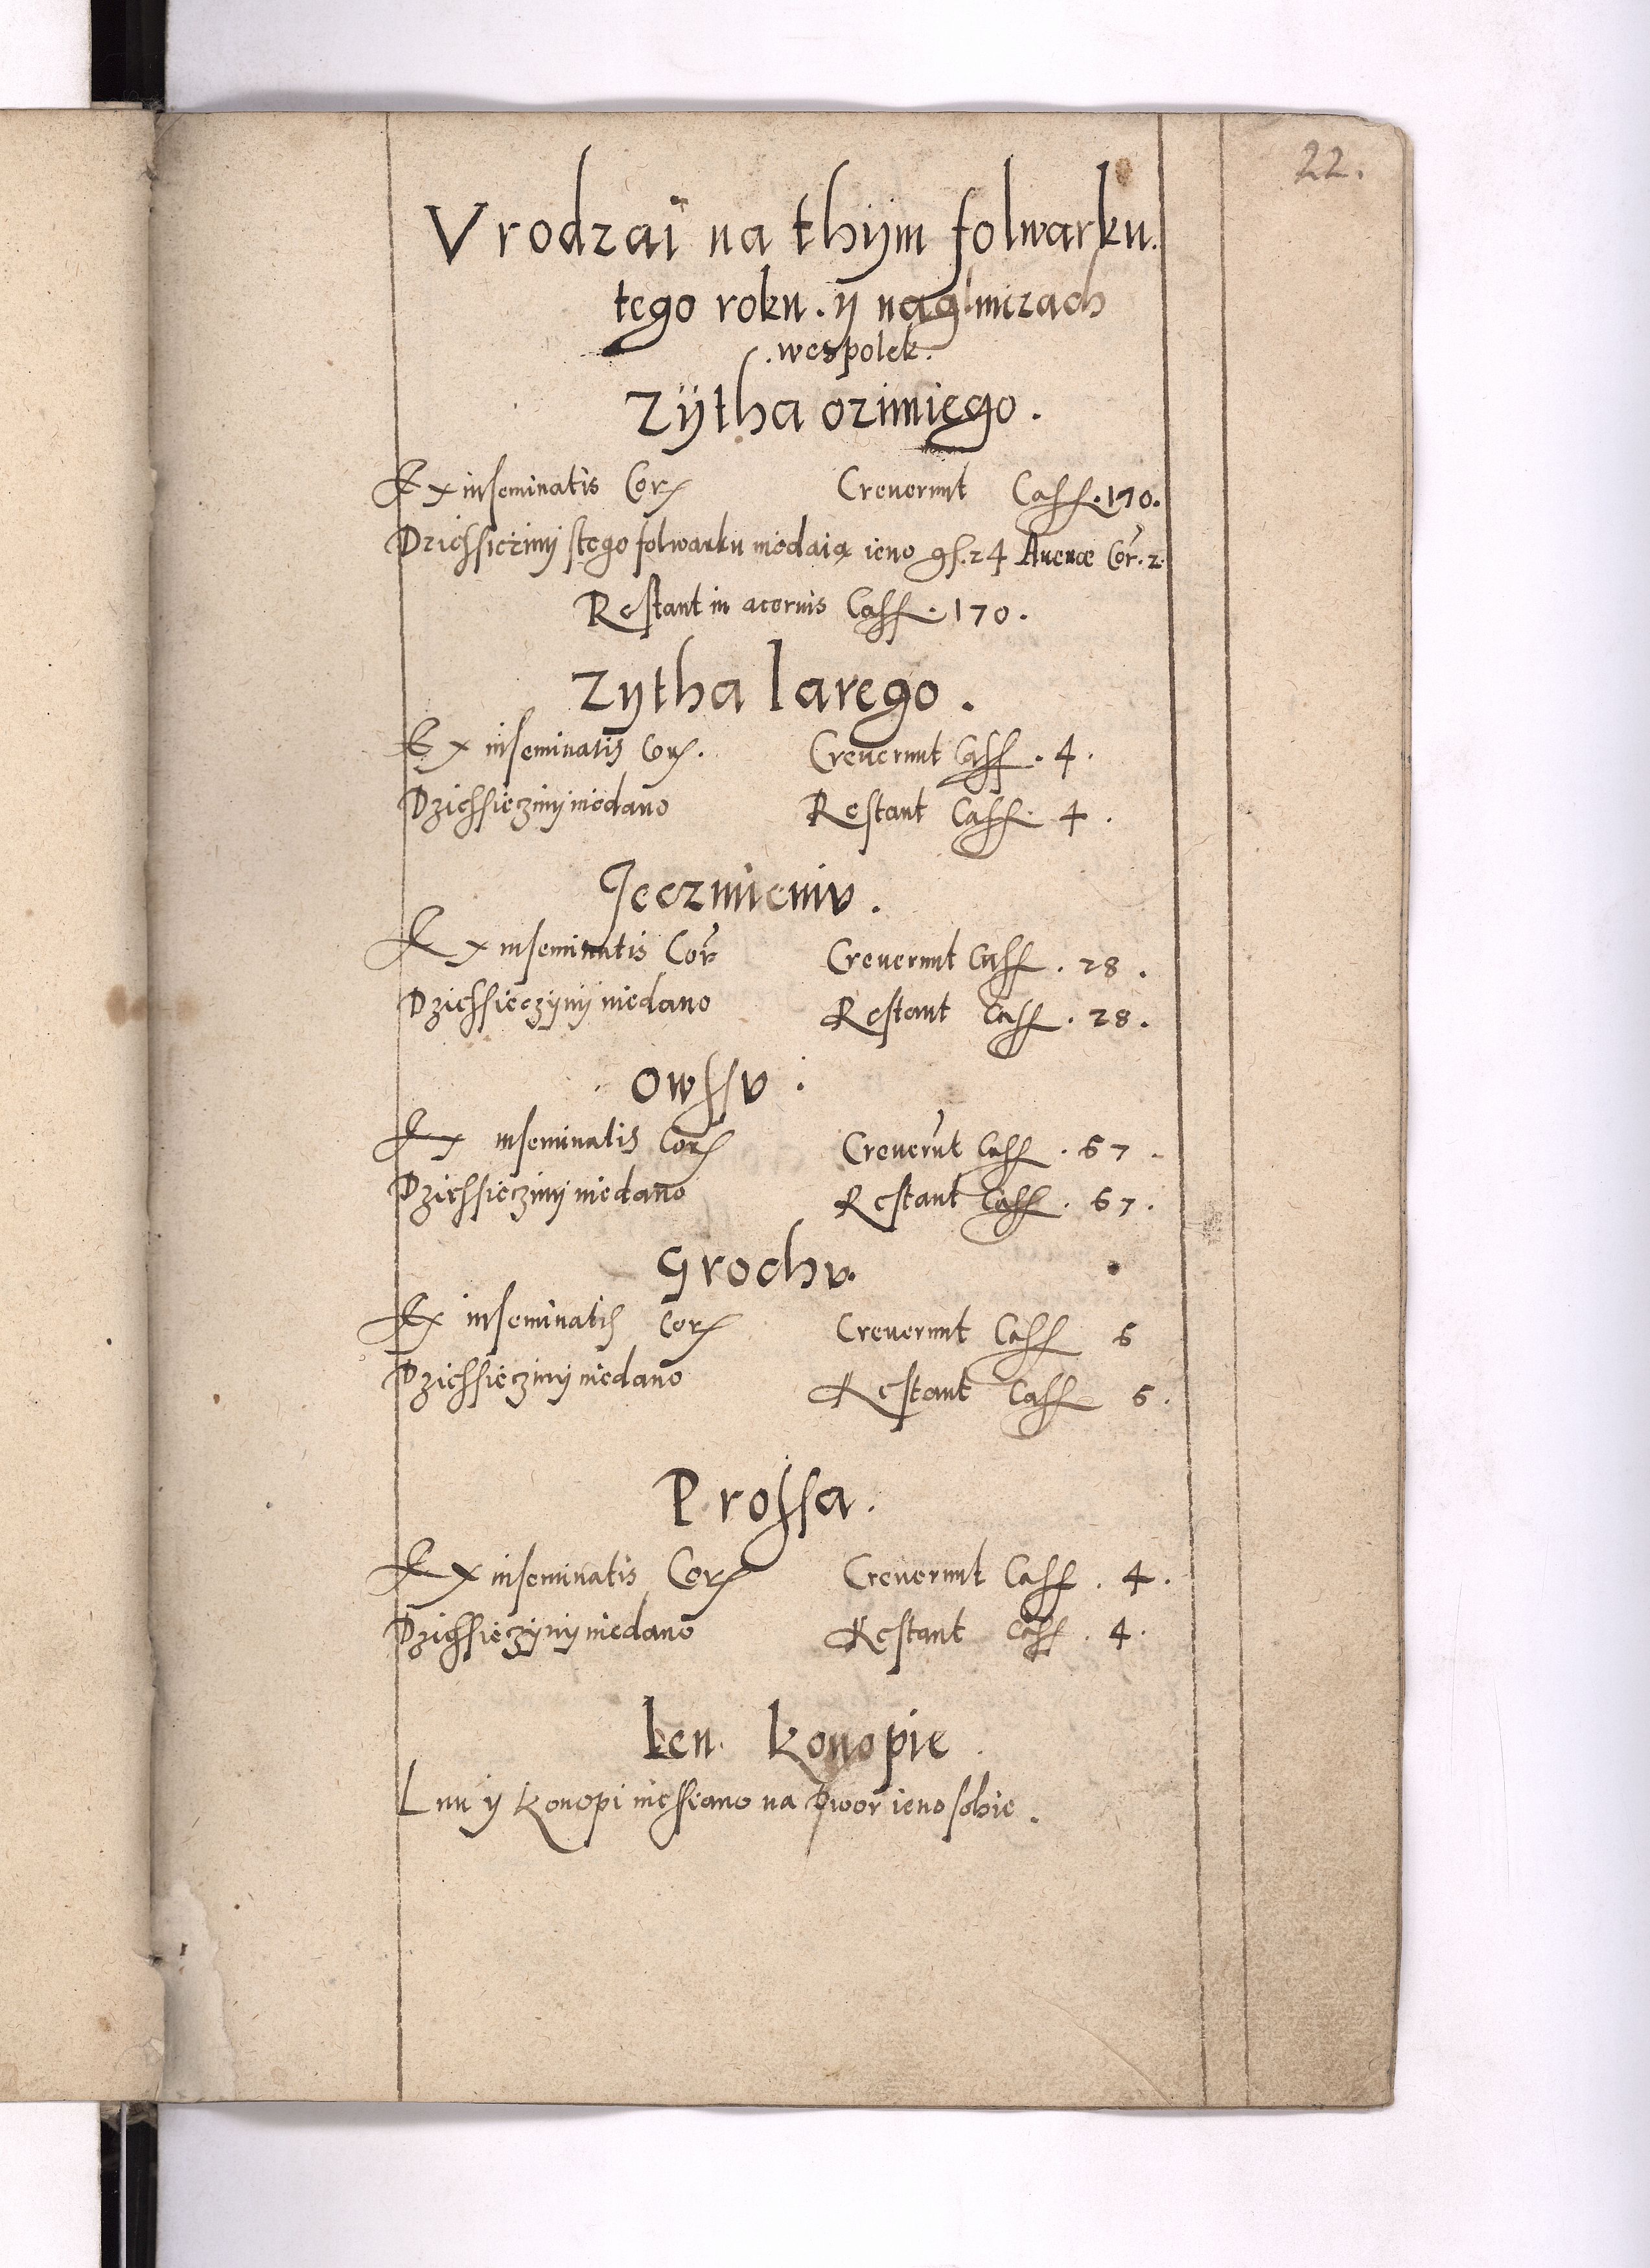 22.
Vrodzai na thijm folwarku.
tego roku. y na glmizach
.wespolek.
Zÿtha ozimiego.
Ex inseminatis Cor Creuerunt Cass. 170.
Dziessieziny stego folwarku niedaią ieno gs. 24 Auenæ Cor. 2.
Restant in aceruis Cass. 170.
Zytha Iarego.
Ex inseminatis Cor. Creuerunt Cass. 4.
Dziessiecziny niedano Restant Cass. 4.
Jeczmieniv.
Ex inseminatis Cor Creuerunt Cass. 28.
Dziessieczyny niedano Restant Cass. 28.
owssv.
Ex inseminatis Cor Creuerut Cass. 67.
Dziessiecziny niedano Restant Cass. 67.
Grochv.
Ex inseminatis Cor Creuerunt Cass 6
Dziessiecziny niedano Restant Cass 6.
Prossa.
Ex inseminatis Cor Creuerunt Cass. 4.
Dziessieczyny niedano Restant Cass. 4.
Len. konopie.
Lnu y konopi niessiano na Dwor ieno sobie.